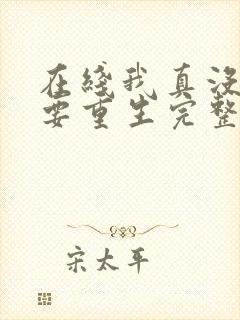 在綫我真沒
要重生完整
宋太平